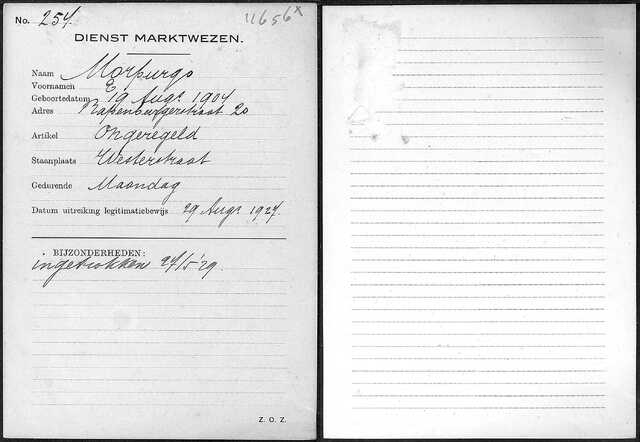 No. 254.
11656x
DIENST MARKTWEZEN.
Naam Morpurgo
Voornamen E
Geboortedatum 19 Augs 1904
Adres Rapenburgerstraat 20
Artikel Ongeregeld
Staanplaats Westerstraat
Gedurende Maandag
Datum uitreiking legitimatiebewijs 29 Augs 1927.
BIJZONDERHEDEN:
ingetrokken 27/5 '29.
Z. O. Z.